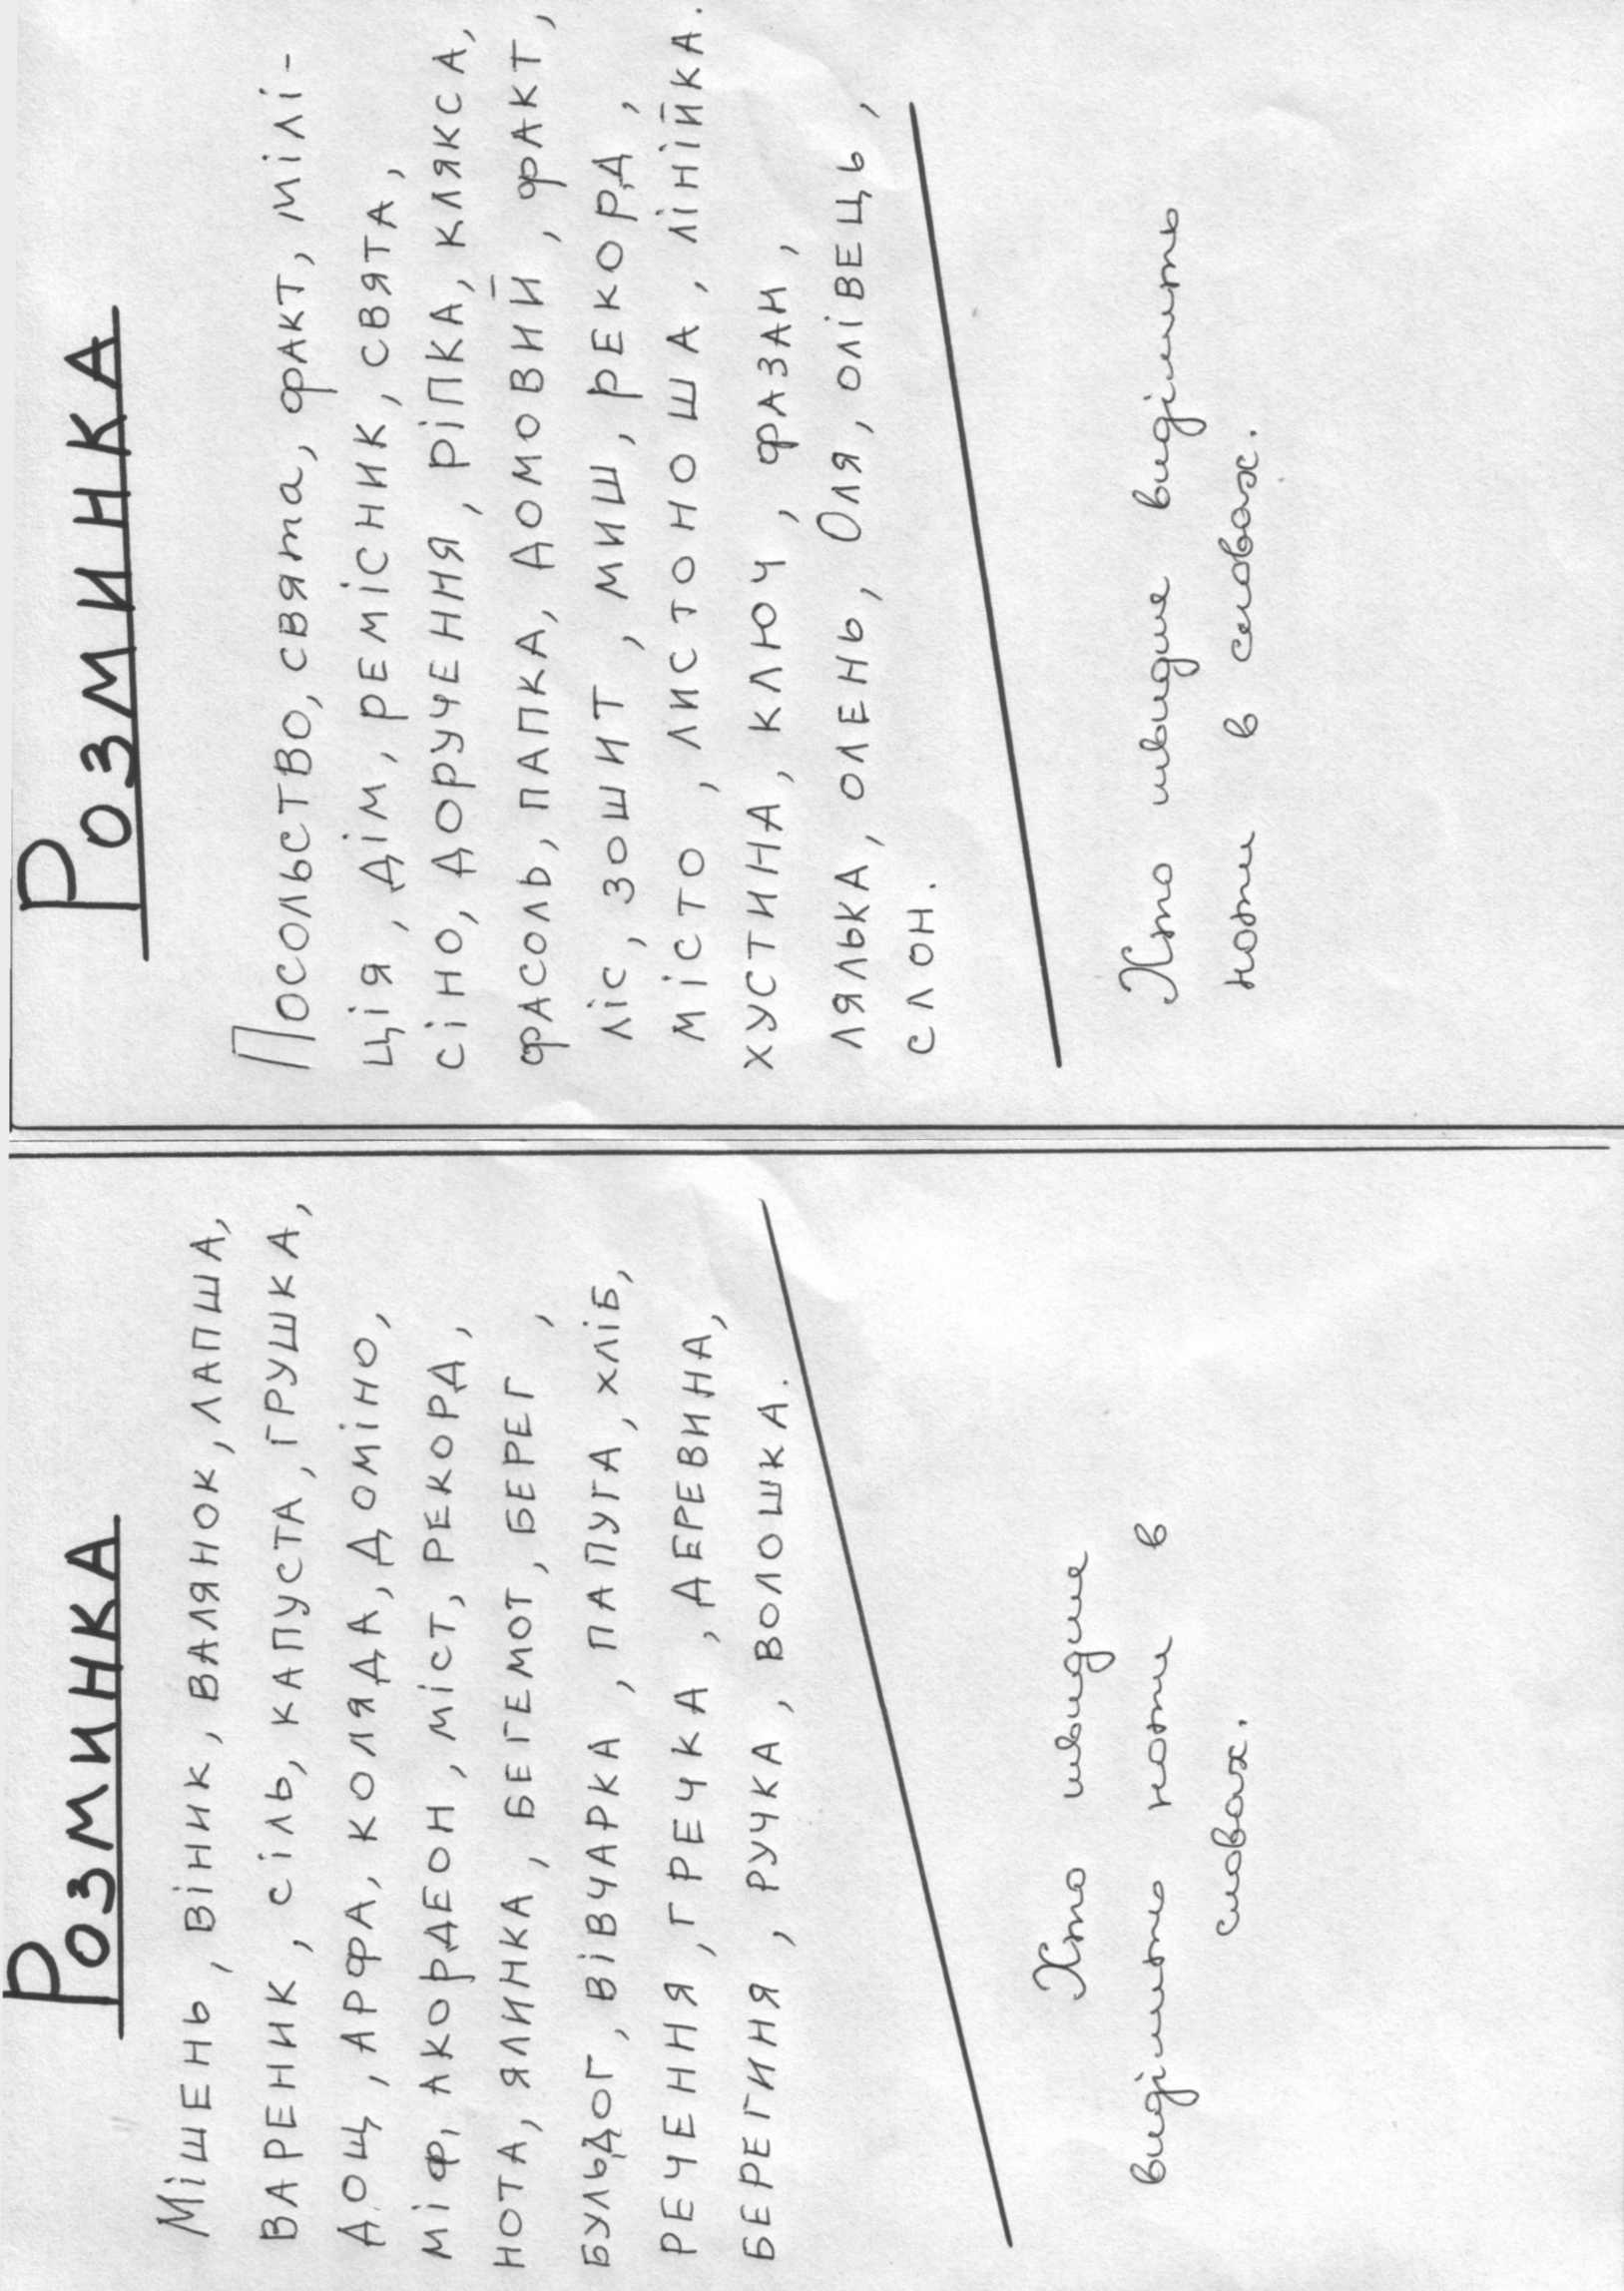 Розминка
Мішень, вінник, валянок, лапша,
вареник, сіль, капуста, грушка,
дощ, арфа, коляда, доміно,
міф, акордеон, міст, рекорд,
нота, ялинка, бегемот, берег,
бульдог, вівчарка, папуга, хліб,
речення, гречка, деревина,
берегиня, ручка, волошка.
Хто швидше
виділить ноти в
словах.
Розминка
Посольство, свята, факт, мілі-
ція, дім, ремісник, свята,
сіно, доручення, ріпка, клякса,
фасоль, папка, домовий, факт,
ліс, зошит, миш, рекорд,
місто, листоноша, лінійка.
хустина, ключ, фазан,
лялька, олень, Оля, олівець,
слон.
Хто швидше виділить
ноти в словах.